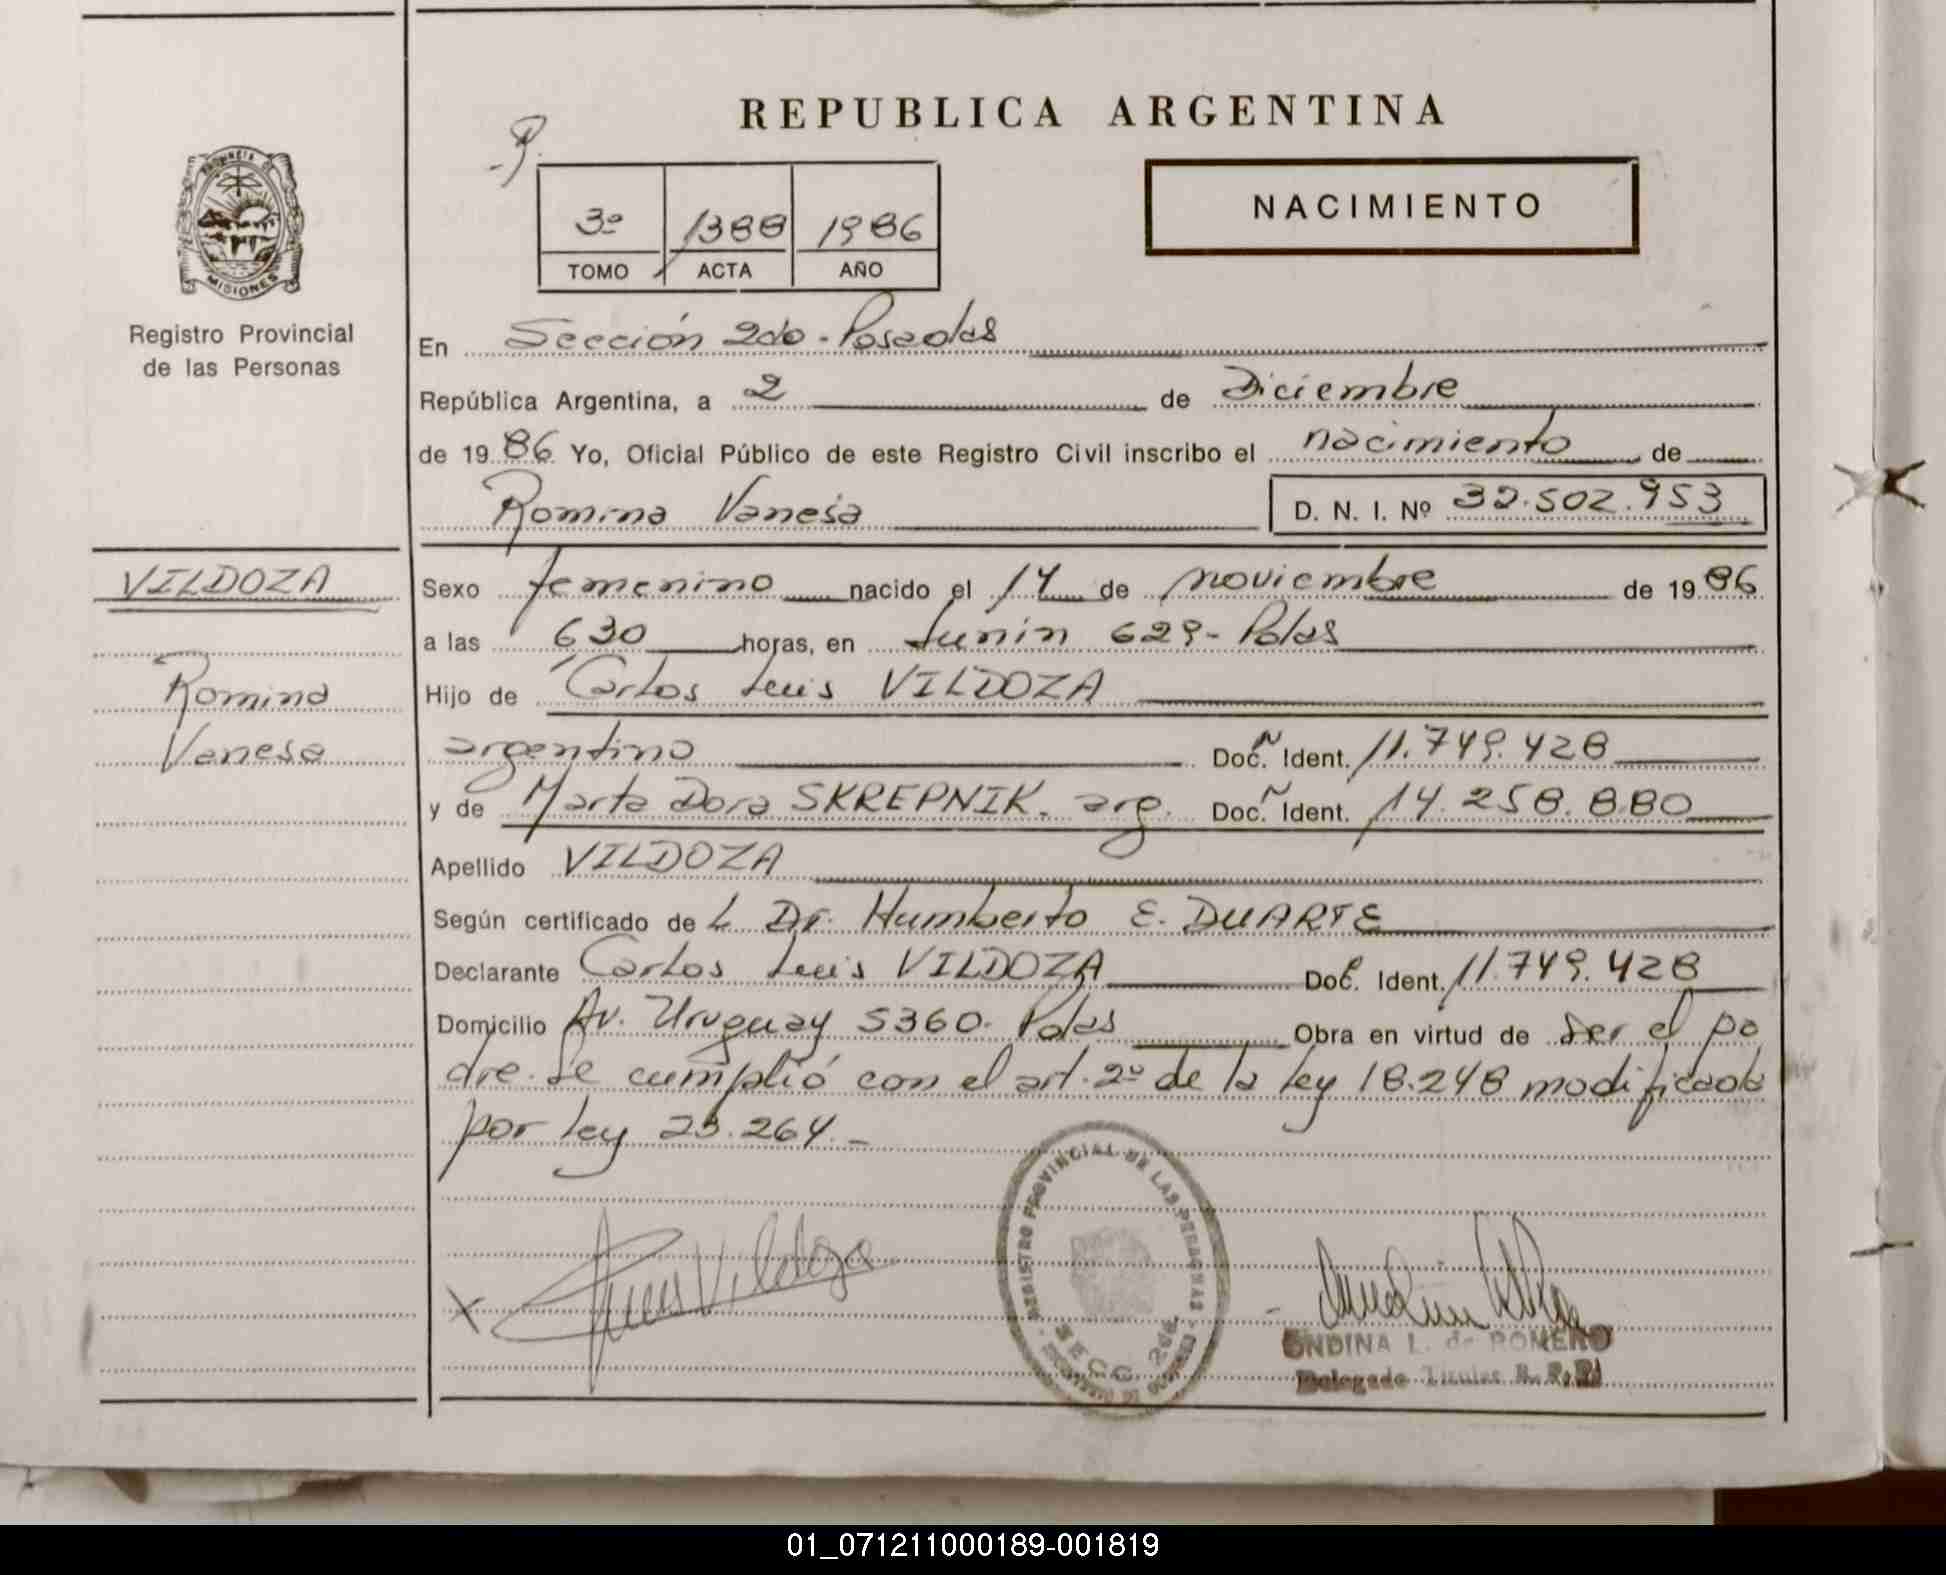 REPUBLICA ARGENTINA
NACIMIENTO
3º 1388 1986
TOMO ACTA AÑO
PROVINCIA DE
MISIONES
Registro Provincial
de las Personas
En Sección 2da - Posadas
República Argentina, a 2 de Diciembre
de 1986 Yo, Oficial Público de este Registro Civil inscribo el nacimiento de
Romina Vanesa D. N. I. Nº 32.502.953
VILDOZA
Romina
Vanesa
Sexo femenino nacido el 14 de noviembre de 1986
a las 630 horas, en Junín 629 - Pdas
Hijo de Carlos Luis VILDOZA
argentino Doc. Ident. 11.749.428
y de Marta Dora SKREPNIK. arg. Doc. Ident. 14.258.880
Apellido VILDOZA
Según certificado de L Dr. Humberto E. DUARTE
Declarante Carlos Luis VILDOZA Doc. Ident. 11.749.428
Domicilio Av. Uruguay 5360 - Pdas Obra en virtud de ser el pa
dre. Se cumplió con el art. 2º de la ley 18.248 modificada
por ley 23.264.-
REGISTRO PROVINCIAL DE LAS PERSONAS
SECC 2da
X Luis Vildoza
ONDINA L. de ROMERO
Delegado Titular R. P. P.
01_071211000189-001819